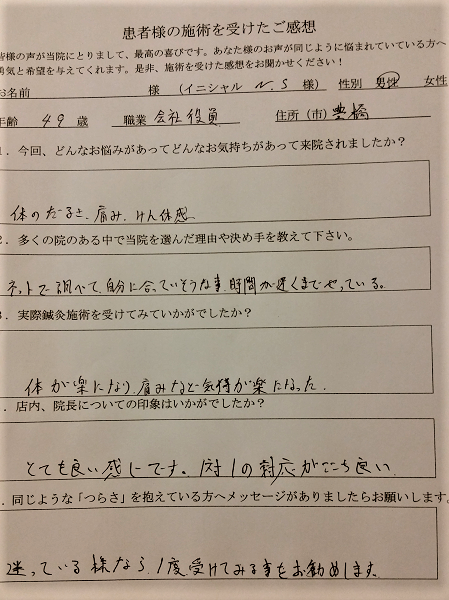 患者様の施術を受けたご感想
皆様の声が当院にとりまして、最高の喜びです。あなた様のお声が同じように悩まれていている方へ
勇気と希望を与えてくれます。是非、施術を受けた感想をお聞かせください！
お名前 様 (イニシャル N.S 様) 性別 男性 女性
年齢 49 歳 職業 会社役員 住所(市) 豊橋
1. 今回、どんなお悩みがあってどんなお気持ちがあって来院されましたか？
体のだるさ、痛み、けん怠感
2. 多くの院のある中で当院を選んだ理由や決め手を教えて下さい。
ネットで調べて、自分に合っていそうな事、時間が遅くまでやっている。
3. 実際鍼灸施術を受けてみていかがでしたか？
体が楽になり、痛みなど気持が楽になった.
. 店内、院長についての印象はいかがでしたか？
とても良い感じです。1対1の対応がここち良い
. 同じような「つらさ」を抱えている方へメッセージがありましたらお願いします。
迷っている様なら、1度受けてみる事をお勧めします。